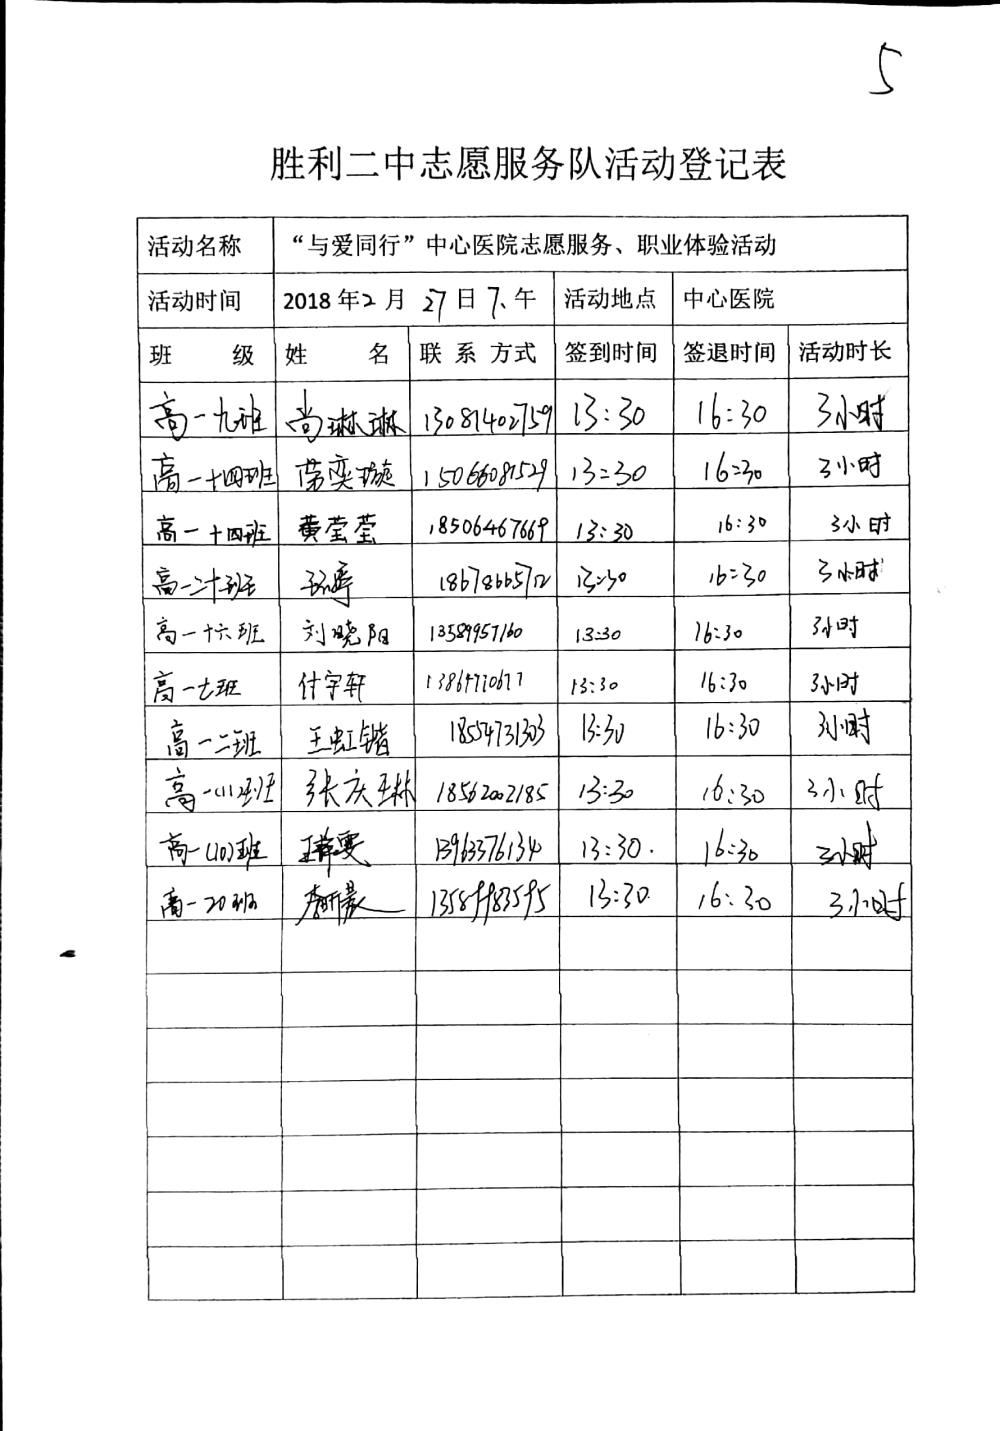 5
胜利二中志愿服务队活动登记表
活动名称 “与爱同行”中心医院志愿服务、职业体验活动
活动时间 2018年2月27日下午 活动地点 中心医院
班级 姓名 联系方式 签到时间 签退时间 活动时长
高一九班 尚琳琳 13081402759 13:30 16:30 3小时
高一十四班 奕璇 15066081529 13:30 16:30 3小时
高一十四班 黄莹莹 18506467669 13:30 16:30 3小时
高一二十班 18678665712 13:30 16:30 3小时
高一十六班 刘晓阳 13589957160 13:30 16:30 3小时
高一七班 付宇轩 13:30 16:30 3小时
高一二班 王虹锴 18554731303 13:30 16:30 3小时
高一(1)班 张庆琳 18562002185 13:30 16:30 3小时
高一(10)班 13963376134 13:30. 16:30 3小时
高一20班 李昕晨 13589983595 13:30. 16:30 3小时